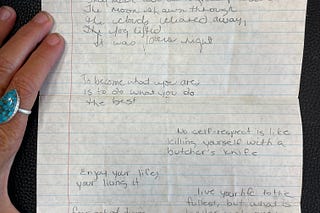 The moon is seen through
the clouds cleared away,
The fog lifted
It was
night
To become what you are
is to do what you do
the best
No self-respect is like
killing yourself with a
butcher's knife
Enjoy your life,
your living it
live your life to the
fullest, but what is